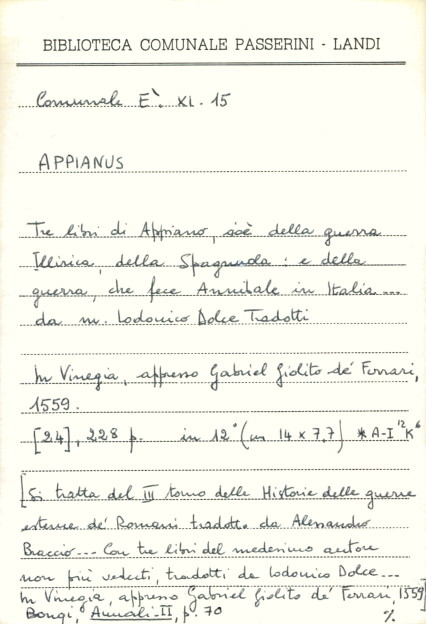 BIBLIOTECA COMUNALE PASSERINI - LANDI
Comunale E`. XI. 15
APPIANUS
Tre libri di Appiano, cioè della guerra
Illirica, della Spagnuola : e della
guerra, che fece Annibale in Italia ...
da m. Lodouico Dolce Tradotti
In Vinegia, appresso Gabriel Giolito de' Ferrari,
1559.
[24], 228 p. in 12° (cm 14 x 7,7) * A-I¹² K⁶
[Si tratta del III tomo delle Historie delle guerre
esterne de' Romani tradotte da Alessandro
Braccio... Con tre libri del medesimo autore
non più veduti, tradotti da Lodouico Dolce...
In Vinegia, appresso Gabriel Giolito de' Ferrari, 1559]
Bongi, Annali-II, p. 70 %